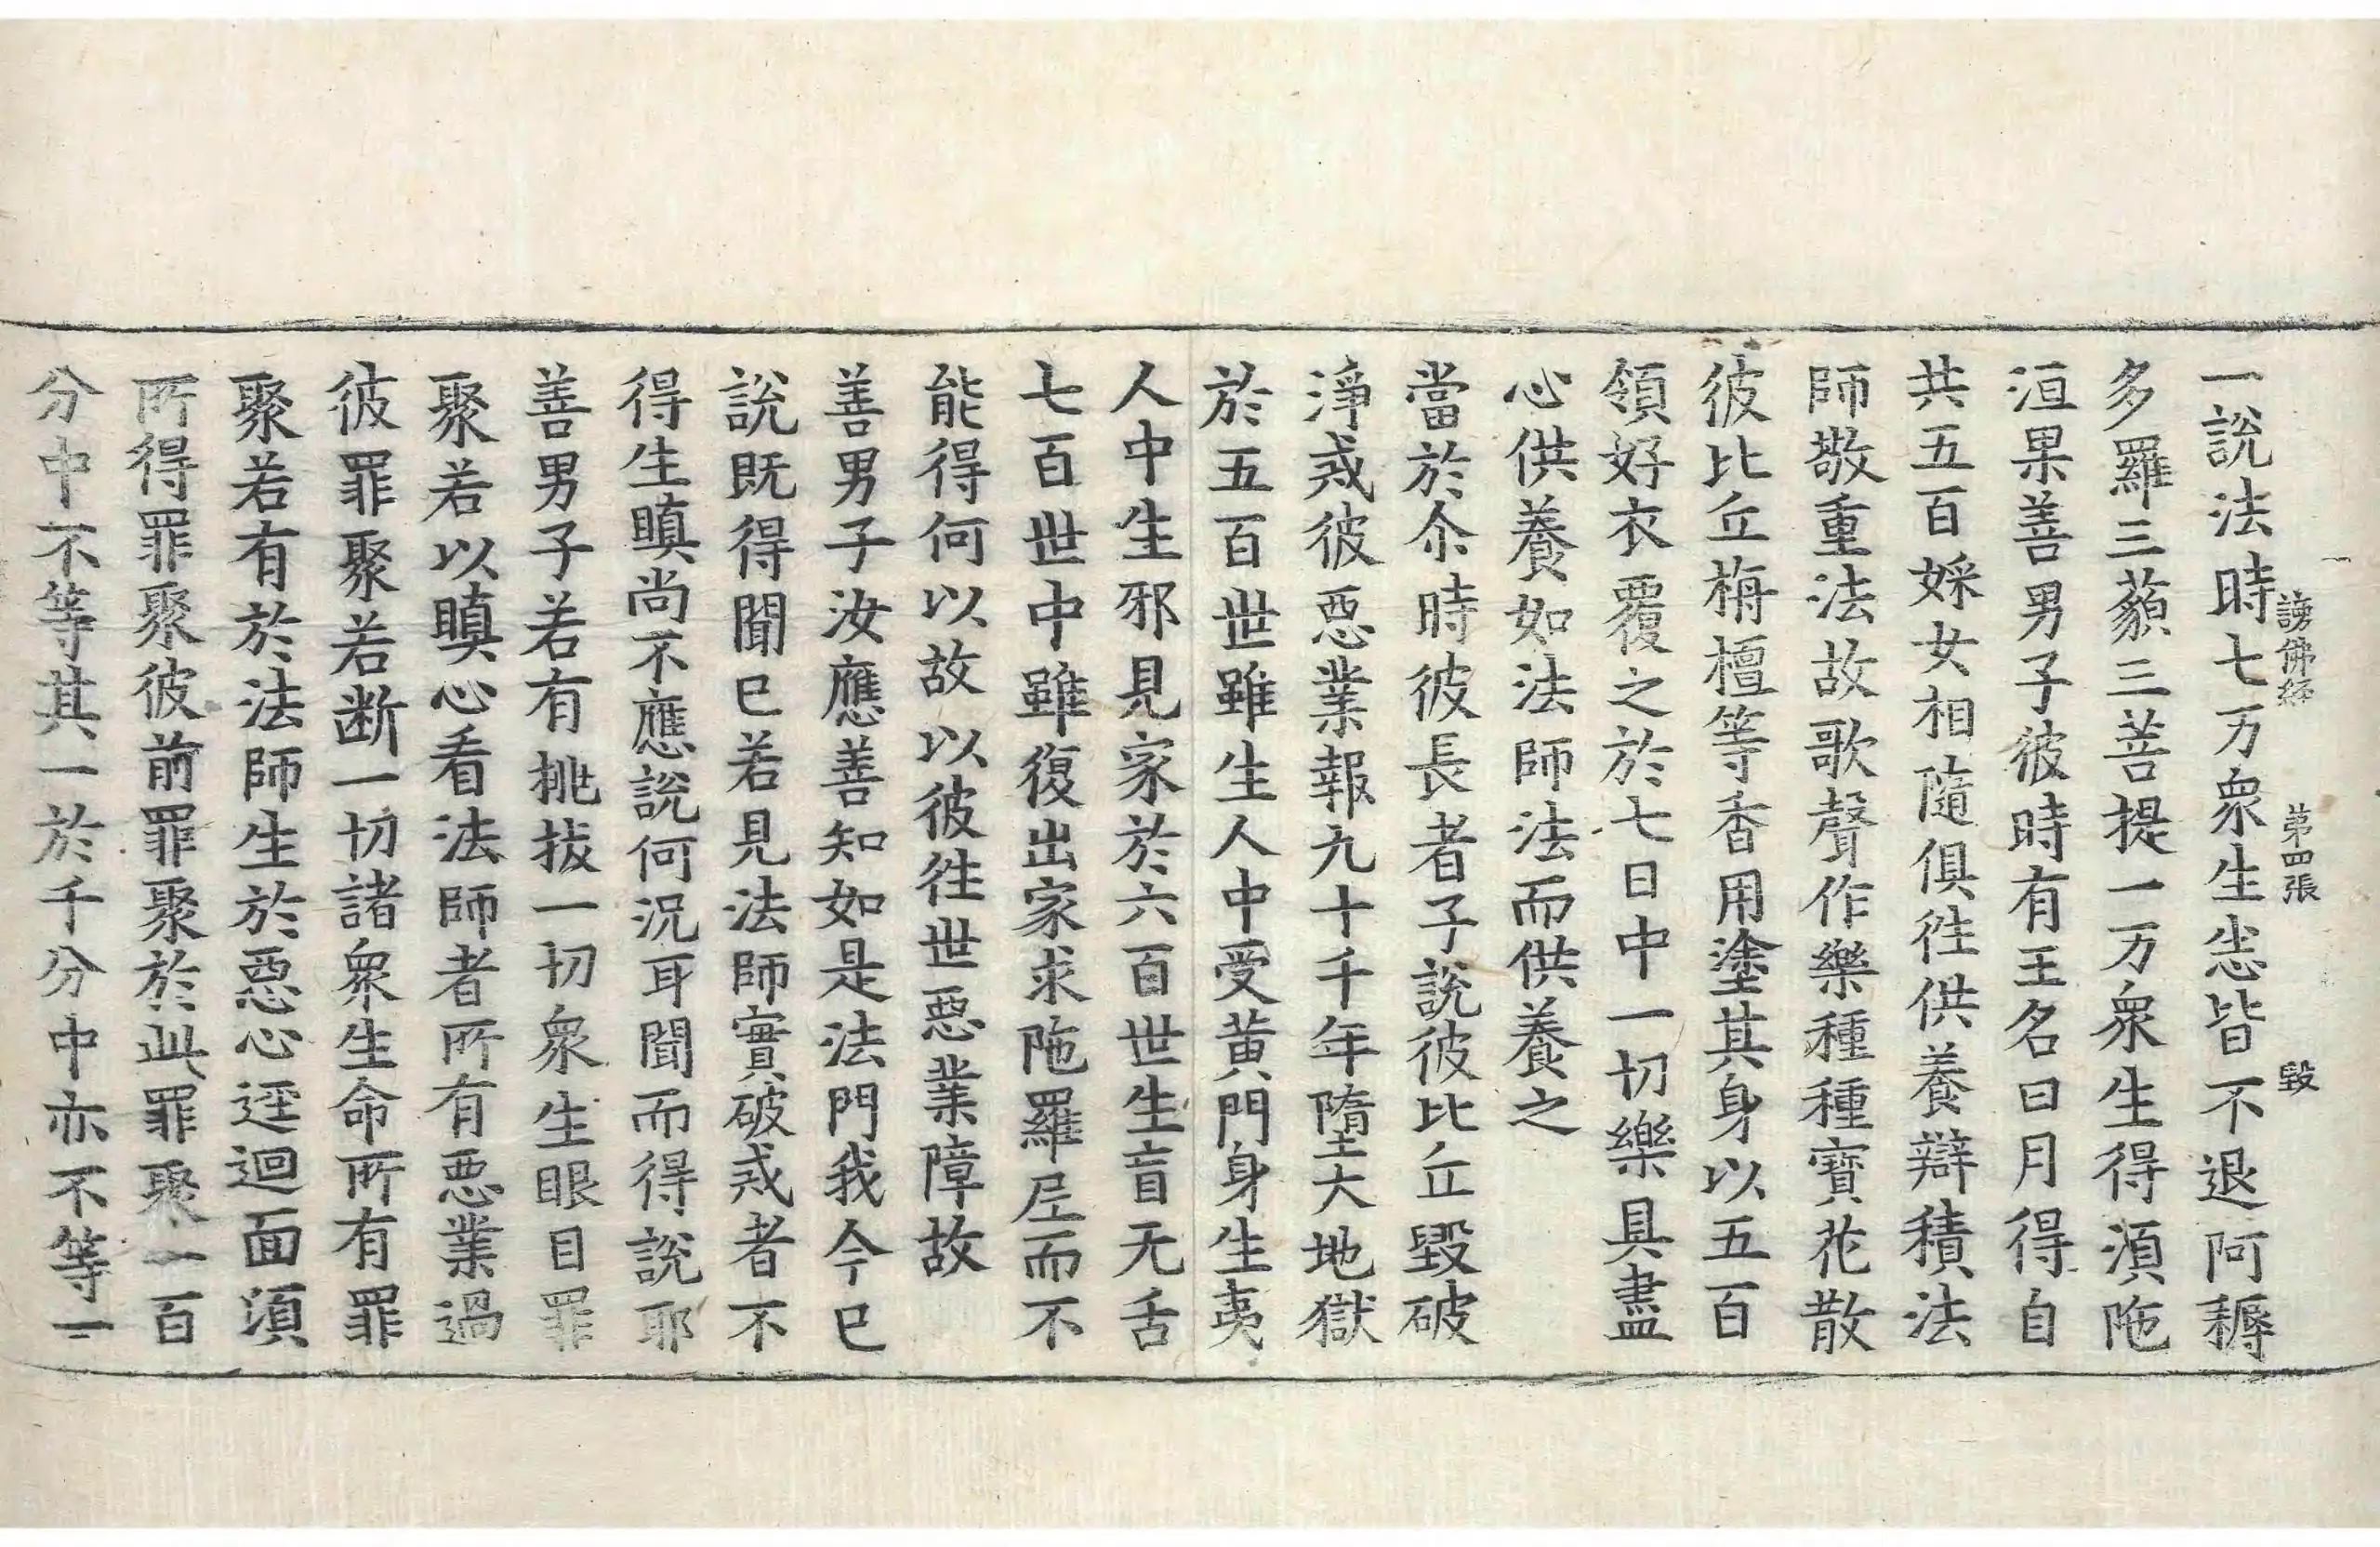 謗佛經 第四張 毀
一說法時七万衆生悉皆不退阿耨
多羅三藐三菩提一万衆生得湏陁
洹果善男子彼時有王名曰月得自
共五百婇女相隨俱徃供養辯積法
師敬重法故歌聲作樂種種寶花散
彼比丘栴檀等香用塗其身以五百
領好衣覆之於七日中一切樂具盡
心供養如法師法而供養之
當於尒時彼長者子說彼比丘毀破
淨戒彼惡業報九十千年墮大地獄
於五百世雖生人中受黄門身生夷
人中生邪見家於六百世生盲无舌
七百世中雖復出家求陁羅𡰱而不
能得何以故以彼徃世惡業障故
善男子汝應善知如是法門我今已
說既得聞已若見法師實破戒者不
得生瞋尚不應說何況耳聞而得說耶
善男子若有挑拔一切衆生眼目罪
聚若以瞋心看法師者所有惡業過
彼罪聚若断一切諸衆生命所有罪
聚若有於法師生於惡心逕迴面湏
所得罪聚彼前罪聚於此罪聚一百
分中不等其一於千分中亦不等一